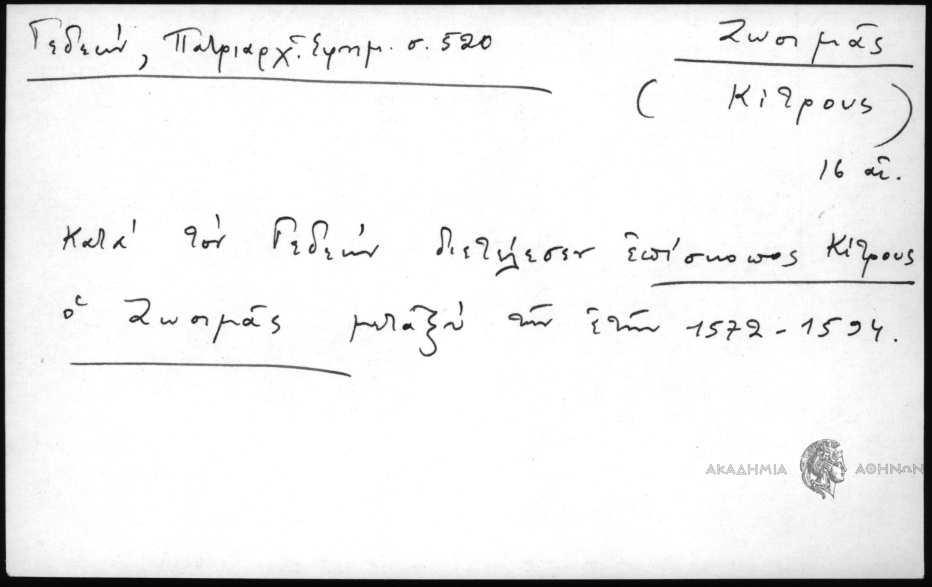 Γεδεών, Πατριαρχ. Εφημ. σ. 520
Ζωσιμᾶς
(Κίτρους)
16 αἰ.
Κατά τόν Γεδεών διετέλεσεν ἐπίσκοπος Κίτρους
ὁ Ζωσιμᾶς μεταξύ τῶν ἐτῶν 1572-1594.
ΑΚΑΔΗΜΙΑ ΑΘΗΝΩΝ